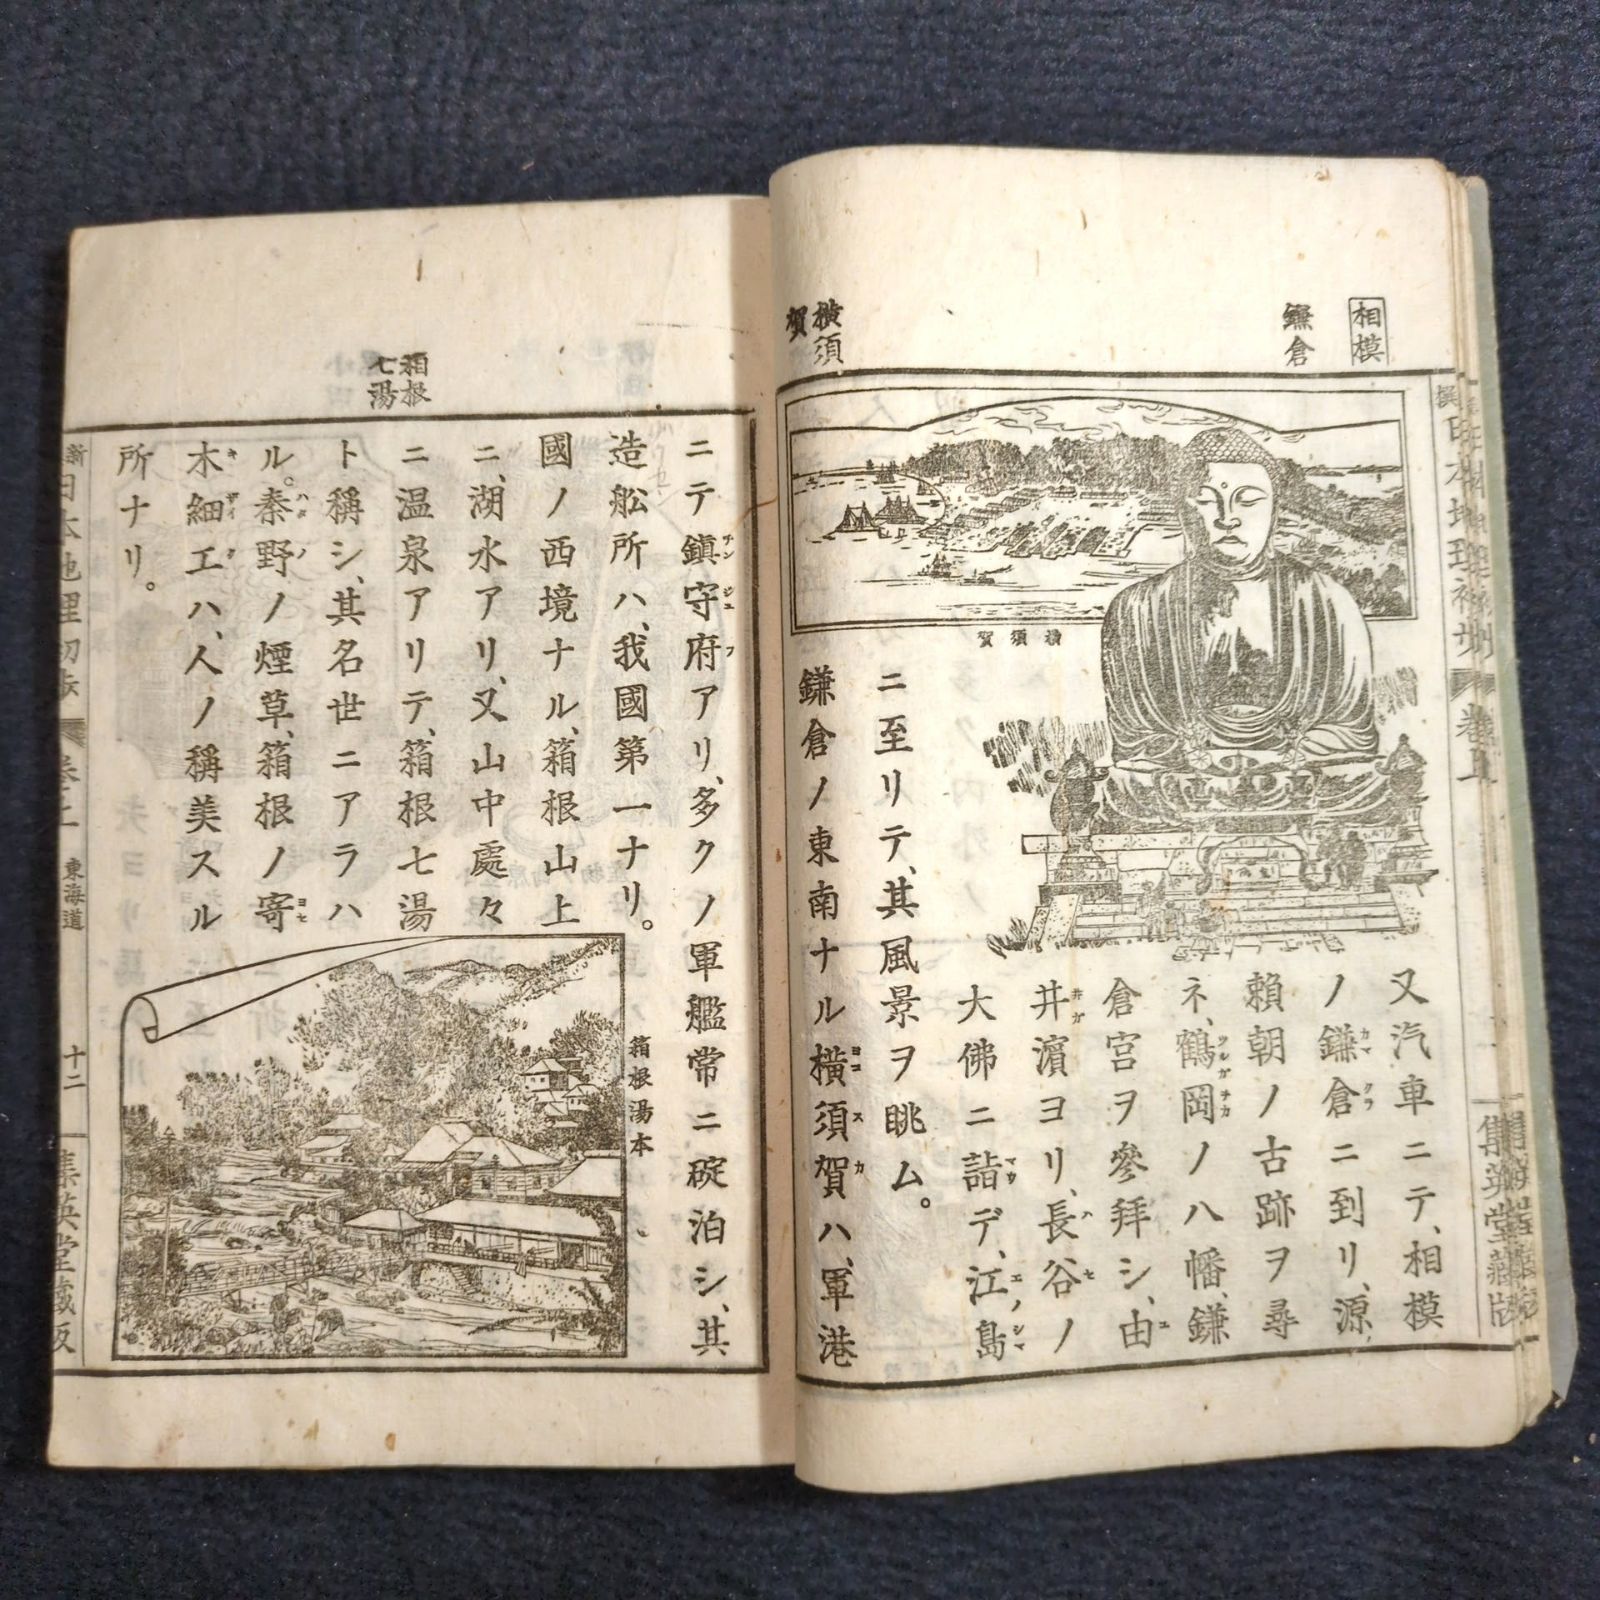 相模
鎌倉
横須
賀
横須賀
又汽車ニテ、相模
ノ鎌倉ニ到リ、源
賴朝ノ古跡ヲ尋
ネ、鶴岡ノ八幡、鎌
倉宮ヲ參拜シ、由
井濵ヨリ、長谷ノ
大佛ニ詣デ、江ノ島
ニ至リテ、其風景ヲ眺ム。
鎌倉ノ東南ナル横須賀ハ、軍港
集英堂藏版
箱根
七湯
ニテ鎭守府アリ、多クノ軍艦常ニ碇泊シ、其
造舩所ハ、我國第一ナリ。
國ノ西境ナル、箱根山上
ニ、湖水アリ、又山中處々
ニ温泉アリテ、箱根七湯
ト稱シ、其名世ニアラハ
ル。秦野ノ煙草、箱根ノ寄
木細工ハ、人ノ稱美スル
所ナリ。
箱根湯本
東海道
十二
集英堂藏版